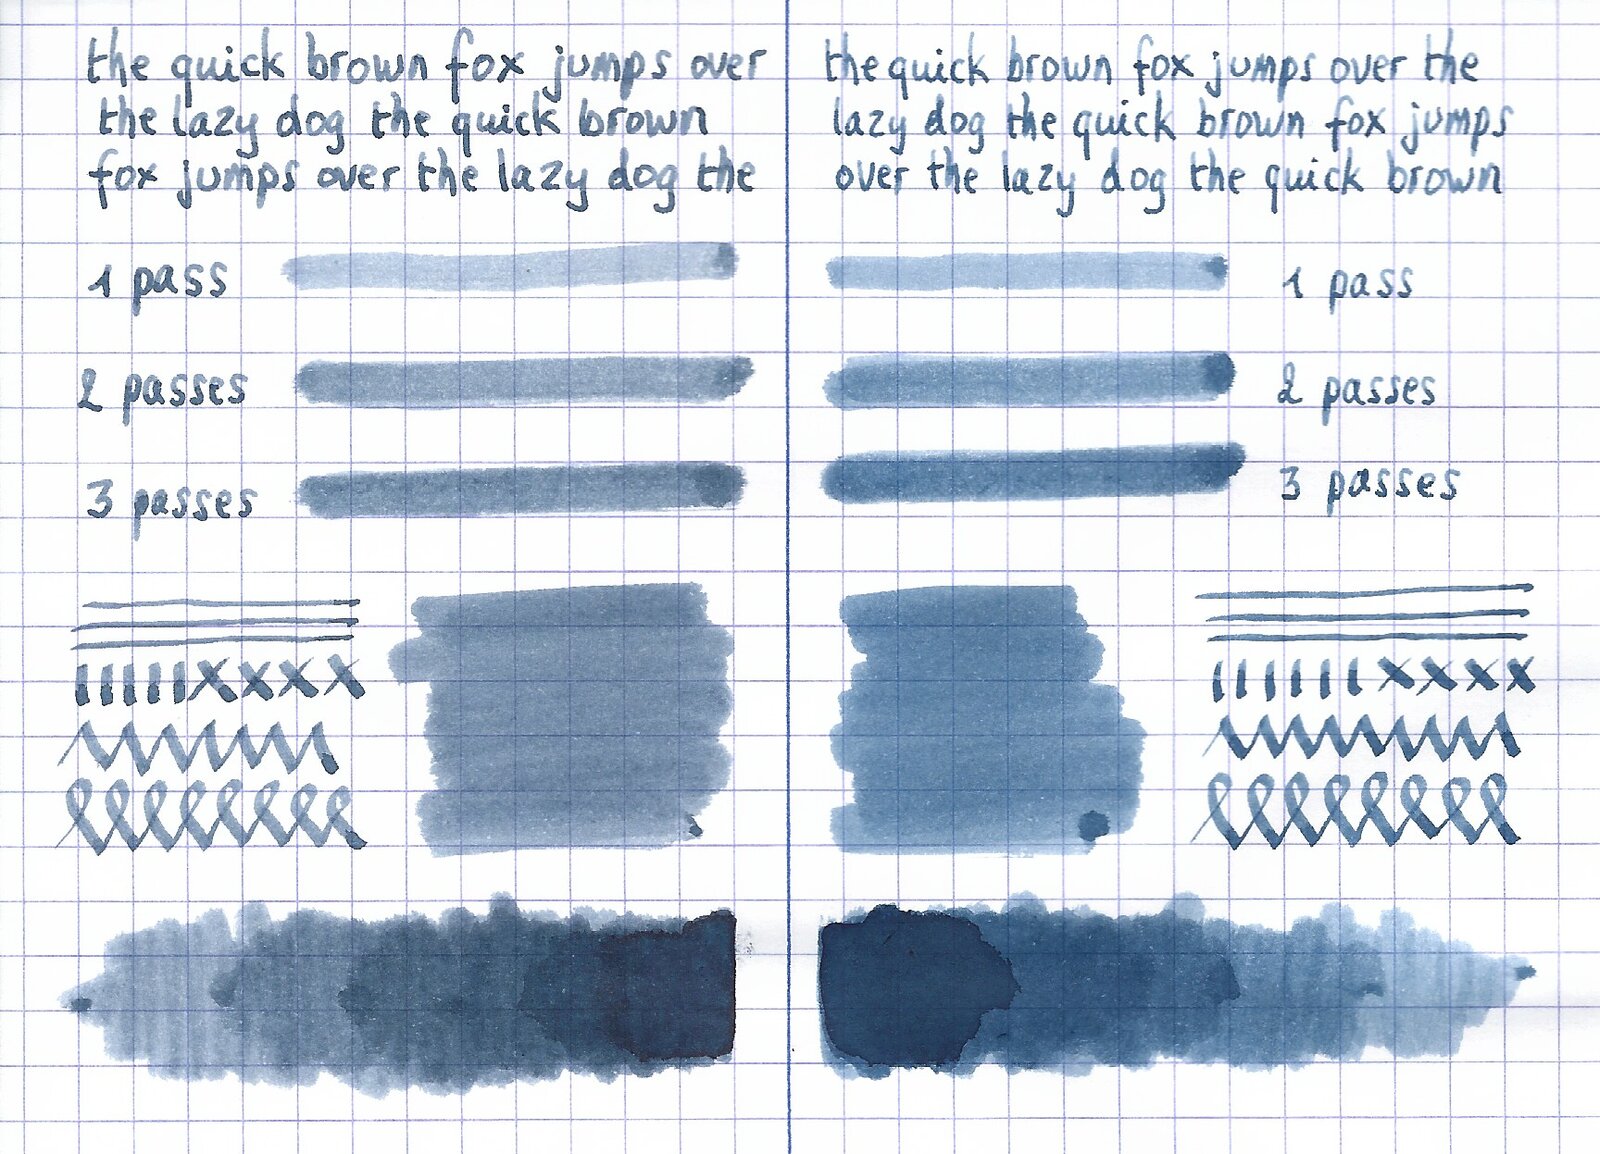 the quick brown fox jumps over
the lazy dog the quick brown
fox jumps over the lazy dog the
1 pass
2 passes
3 passes
the quick brown fox jumps over the
lazy dog the quick brown fox jumps
over the lazy dog the quick brown
1 pass
2 passes
3 passes